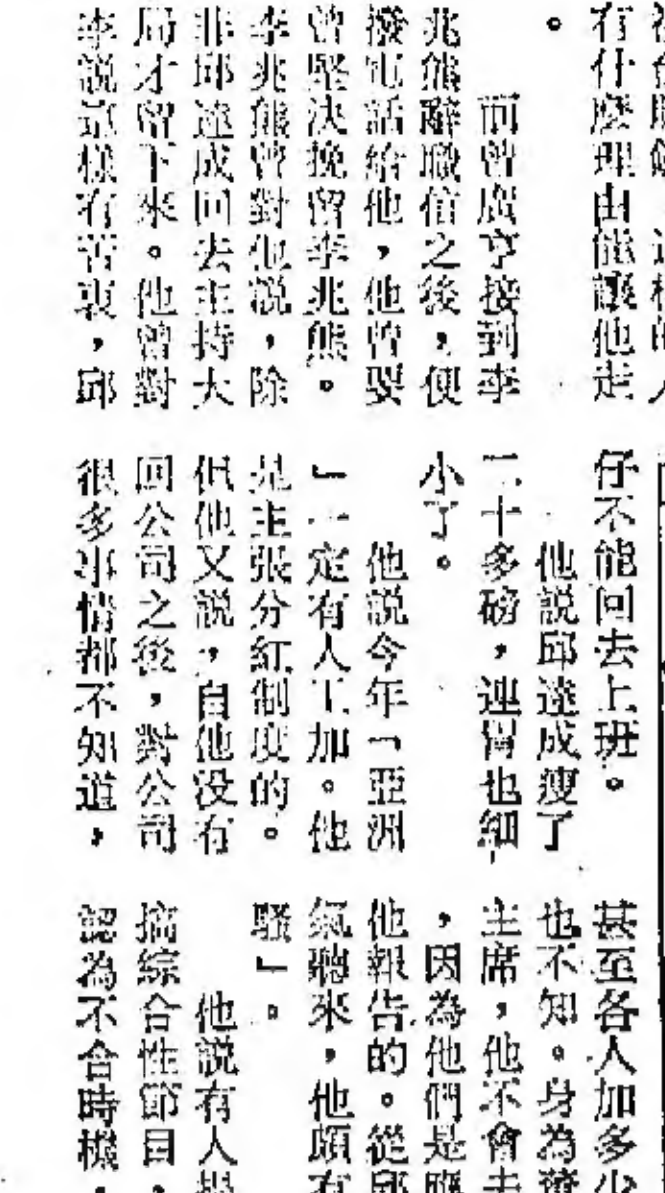 有什麼理由能讓他走
。
而曾廣亨接到李
兆熊辭職信之後，便
撥電話給他，他曾要
曾堅決挽留李兆熊。
李兆熊曾對他說，除
非邱達成回去主持大
局才留下來。他曾對
李說這樣有苦衷，邱
仔不能回去上班。
他說邱達成瘦了
二十多磅，連胃也細
小了。
他說今年「亞洲
」一定有人工加。他
是主張分紅制度的。
但他又說，自他沒有
回公司之後，對公司
很多事情都不知道，
甚至各人加多少
也不知。身為
主席，他不會去
，因為他們是應
他報告的。從邱
氣聽來，他頗有
騷」。
他說有人提
搞綜合性節目，
認為不合時機，